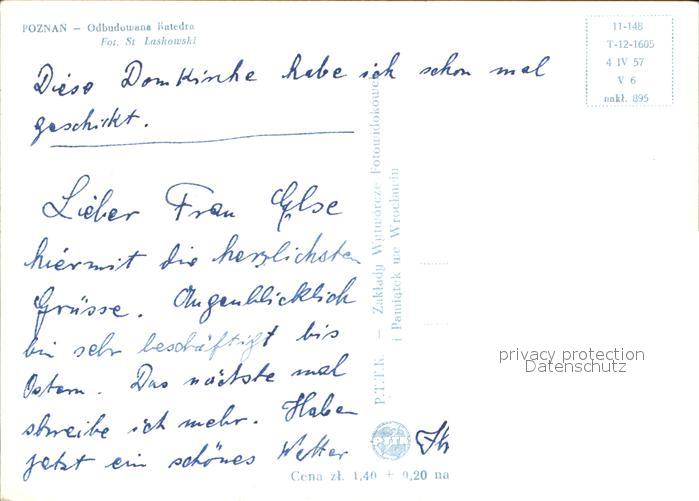 POZNAŃ – Odbudowana Katedra
Fot. St Laskowski
11-148
T-12-1605
4 IV 57
V 6
nakł. 895
Diese Domkirche habe ich schon mal
geschickt.
Lieber Frau Else
hiermit die herzlichsten
Grüsse. Augenblicklich
bin sehr beschäftigt bis
Ostern. Das nächste mal
schreibe ich mehr. Haben
jetzt ein schönes Wetter
Ih
P.T.T.K. – Zakłady Wytwórcze Fotowidokowe
i Pamiątek we Wrocławiu
PTTK
Cena zł. 1,40 + 0,20 na
privacy protection
Datenschutz